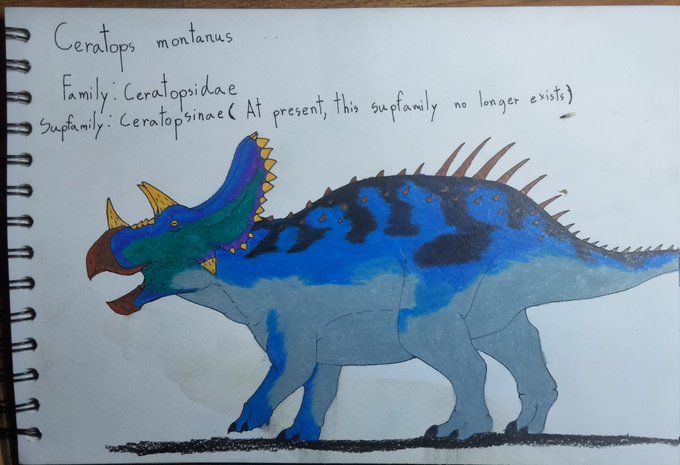 Ceratops montanus
Family: Ceratopsidae
Supfamily: Ceratopsinae ( At present, this supfamily no longer exists)